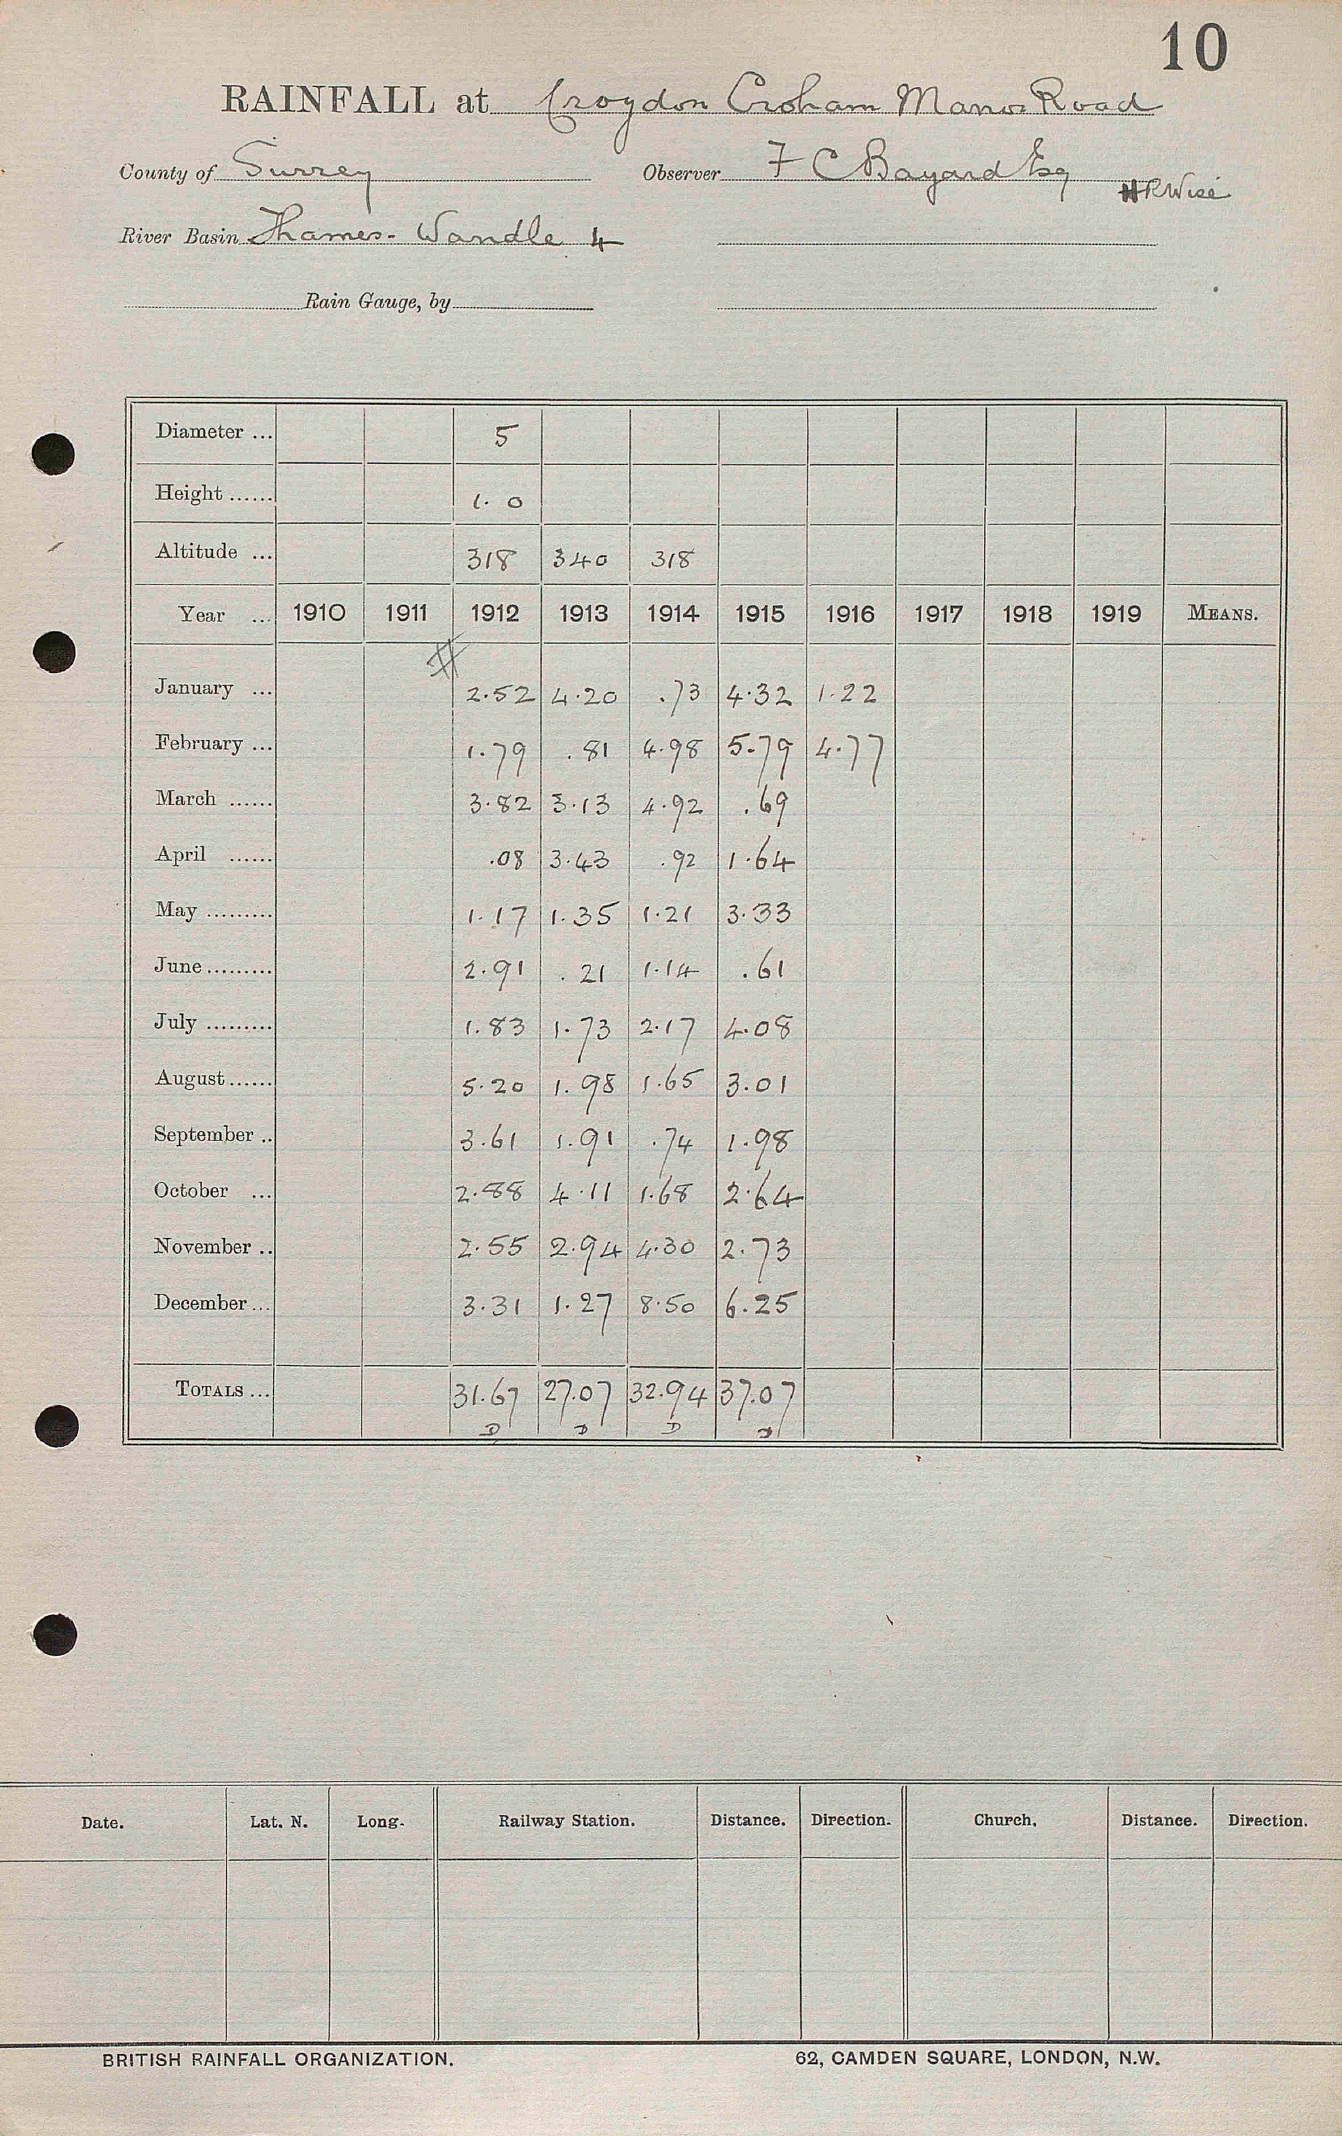 10
RAINFALL at Croydon Croham Manor Road
County of Surrey Observer F C Bayard Esq
HRWise
River Basin Thames - Wandle 4
Rain Gauge, by
Diameter ... 5
Height ...... 1. 0
Altitude ... 318 340 318
Year ... 1910 1911 1912 1913 1914 1915 1916 1917 1918 1919 MEANS.
#
January ... 2.52 4.20 .73 4.32 1.22
February ... 1.79 .81 4.98 5.79 4.77
March ...... 3.82 3.13 4.92 .69
April ...... .08 3.43 .92 1.64
May ......... 1.17 1.35 1.21 3.33
June ......... 2.91 .21 1.14 .61
July ......... 1.83 1.73 2.17 4.08
August ...... 5.20 1.98 1.65 3.01
September .. 3.61 1.91 .74 1.98
October ... 2.88 4.11 1.68 2.64
November .. 2.55 2.94 4.30 2.73
December ... 3.31 1.27 8.50 6.25
TOTALS ... 31.67 27.07 32.94 37.07
D D D D
Date. Lat. N. Long. Railway Station. Distance. Direction. Church. Distance. Direction.
BRITISH RAINFALL ORGANIZATION. 62, CAMDEN SQUARE, LONDON, N.W.